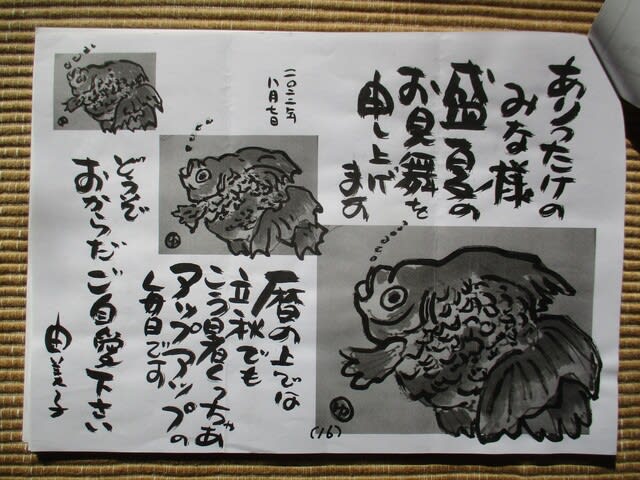 ありったけの
みな様
盛夏の
お見舞を
申し上げ
ます
二〇二二年
八月七日
暦の上では
立秋でも
こう暑くっちゃあ
アップアップの
毎日です
どうぞ
おからだご自愛下さい
由美子
(16)